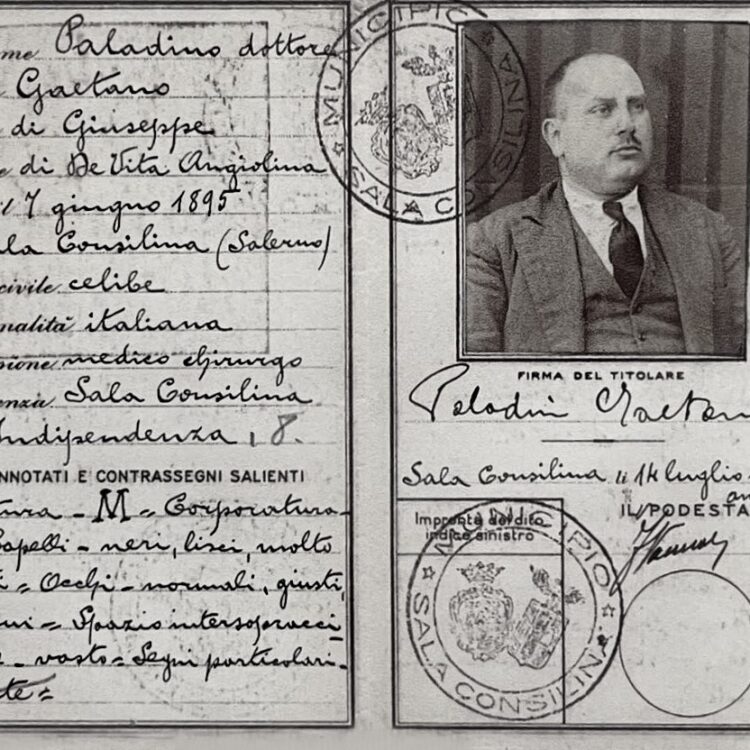 me Paladino dottore
Gaetano
di Giuseppe
e di De Vita Angiolina
il 7 giugno 1895
ala Consilina (Salerno)
civile celibe
nalità italiana
sione medico chirurgo
enza Sala Consilina
Indipendenza, 8.
NNOTATI E CONTRASSEGNI SALIENTI
tura - M = Corporatura -
Capelli - neri, lisci, molto
i = Occhi - normali, giusti,
ni = Spazio intersopracci
- vasto = Segni particolari -
te =
MUNICIPIO
SALA CONSILINA
FIRMA DEL TITOLARE
Paladini Gaetan
Sala Consilina li 14 luglio
an
IL PODESTA
Impronta del dito
indice sinistro
MUNICIPIO
SALA CONSILINA